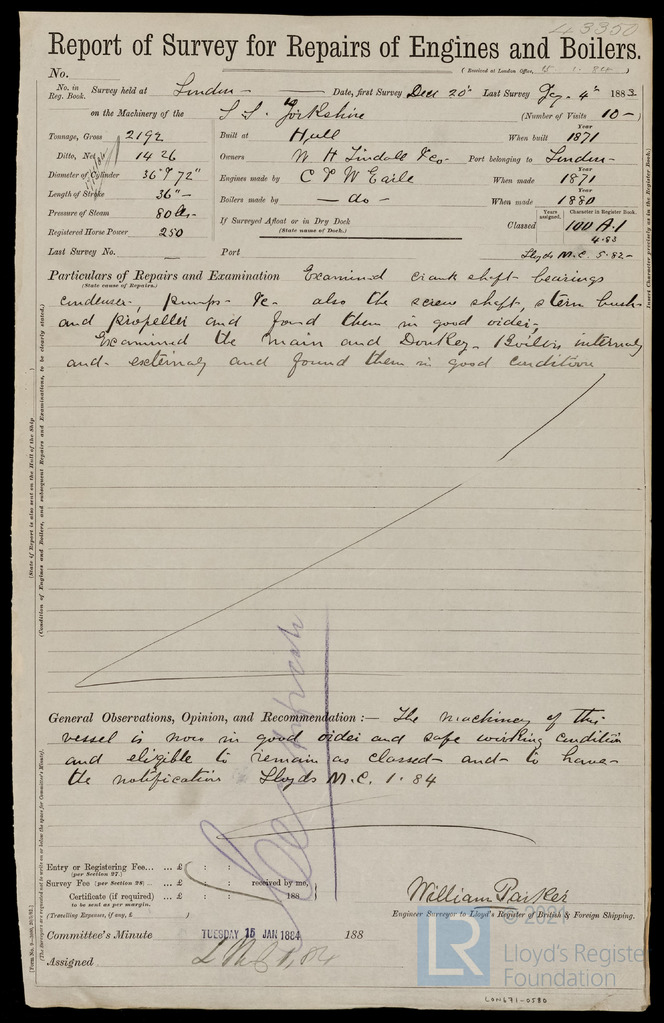 43350
Report of Survey for Repairs of Engines and Boilers.
No. (Received at London Office, 15 . 1 . 84 )
No. in Reg. Book. Survey held at London Date, first Survey Dec 20th Last Survey Jay. 4th 1883
on the Machinery of the S.S. Yorkshire (Number of Visits 10 — )
Tonnage, Gross 2192 Built at Hull When built Year 1871
Ditto, Net 1426 Owners W H Tindall & Co Port belonging to London
Diameter of Cylinder 36" & 72" Engines made by C & W Earle When made Year 1871
Length of Stroke 36" Boilers made by — do — When made Year 1880
Pressure of Steam 80 lbs If Surveyed Afloat or in Dry Dock (State name of Dock.) Classed Years assigned. Character in Register Book. 100 A.1
Registered Horse Power 250 4.83
Last Survey No. — Port Lloyds M.C. 5.82
Particulars of Repairs and Examination (State cause of Repairs.) Examined crank shaft bearings
condenser, pumps &c also the screw shaft, stern bush
and propeller and found them in good order.
Examined the main and Donkey Boilers internaly
and externaly and found them in good condition
(State if Report is also sent on the Hull of the Ship
(Condition of Engines and Boilers, and subsequent Repairs and Examinations, to be clearly stated.)
Insert Character precisely as in the Register Book.
General Observations, Opinion, and Recommendation :— The machinery of this
vessel is now in good order and safe working condition
and eligible to remain as classed and to have
the notification Lloyds M.C. 1.84
Entry or Registering Fee... ... £ : :
(per Section 27.)
Survey Fee (per Section 28) ... ... £ : : received by me,
Certificate (if required) ... £ : : 188
to be sent as per margin.
(Travelling Expenses, if any, £ )
William Parker
Engineer Surveyor to Lloyd's Register of British & Foreign Shipping.
Committee's Minute TUESDAY 15 JAN 1884 188
Assigned L M C 1.84
(The Surveyors are requested not to write on or below the space for Committee's Minute).
© 2021
LR Lloyd's Registe
Foundation
LON671-0580